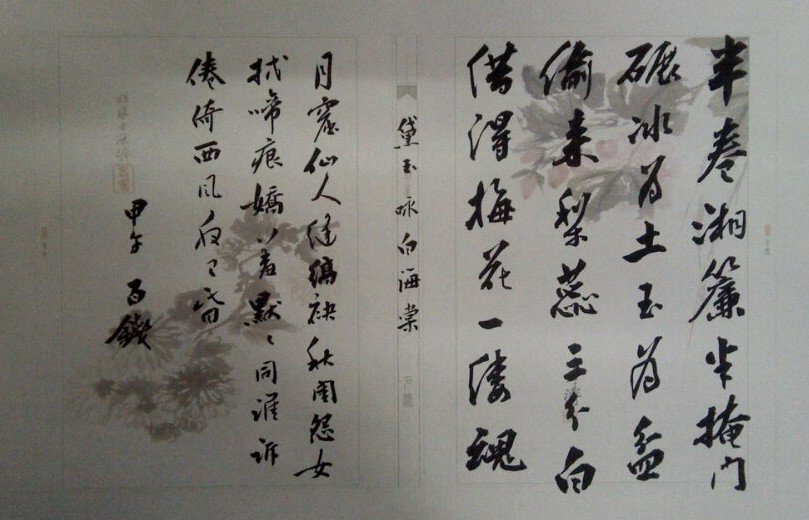 半卷湘簾半掩门
碾冰为土玉为盆
偷来梨蕊三分白
借得梅花一缕魂
黛玉咏白海棠
月窟仙人缝缟袂秋闺怨女
拭啼痕嬌羞默々同谁诉
倦倚西风夜已昏
甲午 百